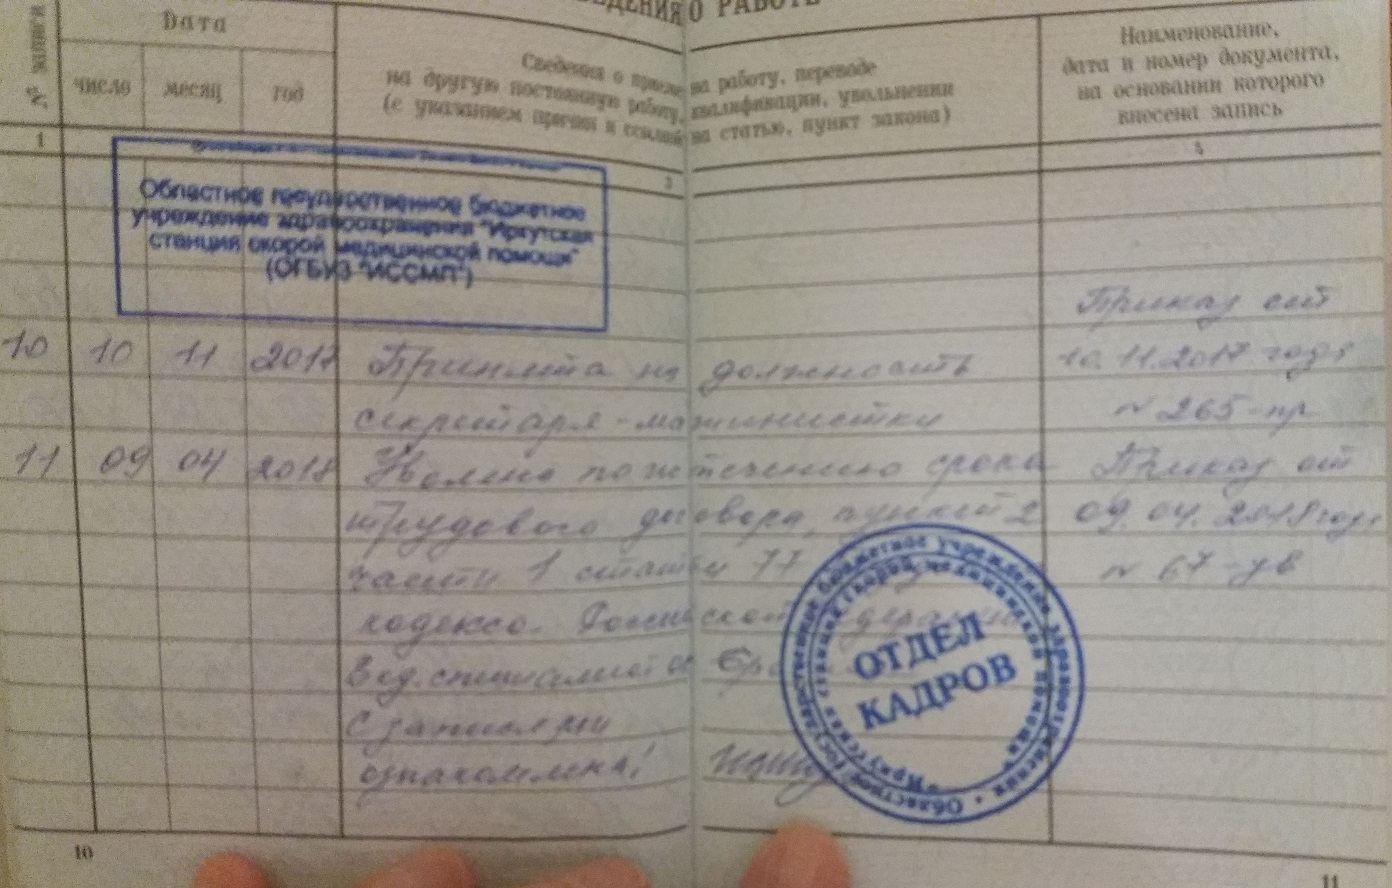 СВЕДЕНИЯ О РАБОТЕ
№ записи
Дата
число месяц год
Сведения о приеме на работу, переводе
на другую постоянную работу, квалификации, увольнении
(с указанием причин и ссылкой на статью, пункт закона)
Наименование,
дата и номер документа,
на основании которого
внесена запись
1 3 4
Областное государственное бюджетное
учреждение здравоохранения "Иркутская
станция скорой медицинской помощи"
(ОГБУЗ "ИССМП")
Приказ от
10 10 11 2017 Принята на должность 10.11.2017 года
секретаря-машинистки № 265-пр
11 09 04 2018 Уволена по истечению срока Приказ от
трудового договора, пункт 2 09.04.2018 года
части 1 статьи 77 № 67-ув
кодекса Российской
Вед. специалист
С записями
ознакомлена:
Областное государственное бюджетное учреждение здравоохранения
"Иркутская станция скорой медицинской помощи"
ОТДЕЛ
КАДРОВ
10 11